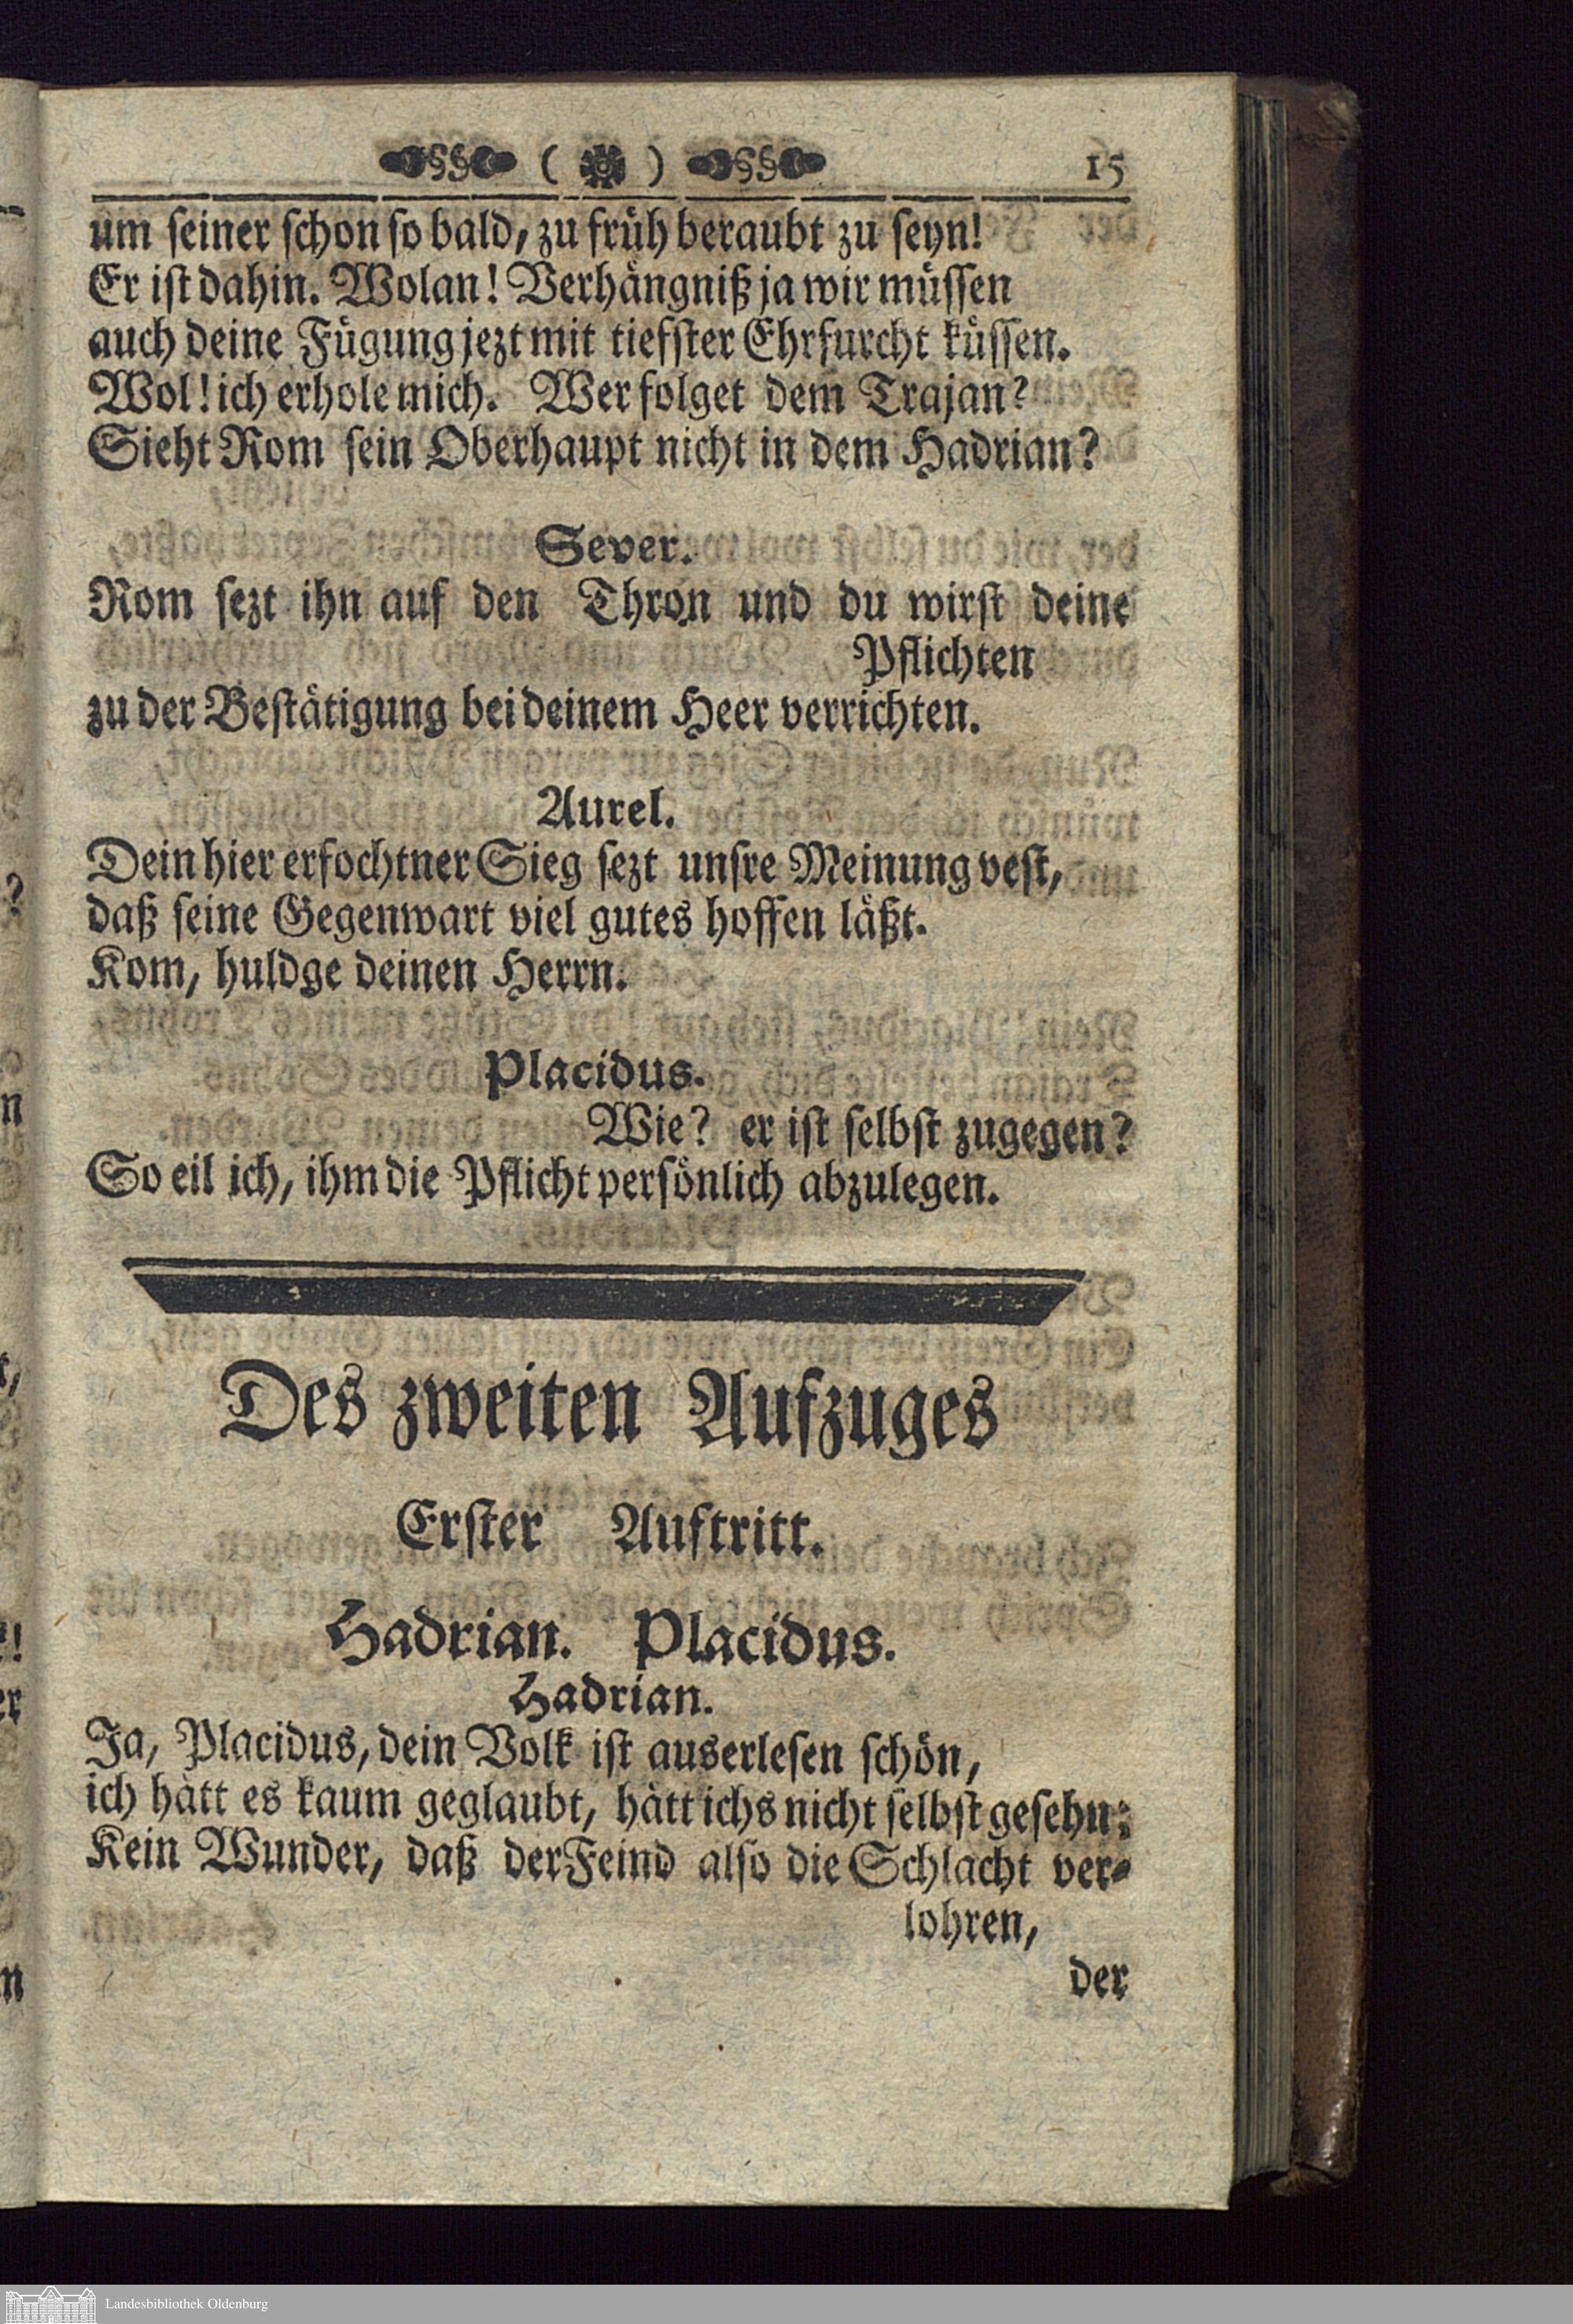 ( ) 15
um seiner schon so bald, zu früh beraubt zu seyn!
Er ist dahin. Wolan! Verhängniß ja wir müssen
auch deine Fügung jezt mit tiefster Ehrfurcht küssen.
Wol! ich erhole mich. Wer folget dem Trajan?
Sieht Rom sein Oberhaupt nicht in dem Hadrian?
Sever.
Rom sezt ihn auf den Thron und du wirst deine
Pflichten
zu der Bestätigung bei deinem Heer verrichten.
Aurel.
Dein hier erfochtner Sieg sezt unsre Meinung vest,
daß seine Gegenwart viel gutes hoffen läßt.
Kom, huldge deinen Herrn.
Placidus.
Wie? er ist selbst zugegen?
So eil ich, ihm die Pflicht persönlich abzulegen.
Des zweiten Aufzuges
Erster Auftritt.
Hadrian. Placidus.
Hadrian.
Ja, Placidus, dein Volk ist auserlesen schön,
ich hätt es kaum geglaubt, hätt ichs nicht selbst gesehn:
Kein Wunder, daß der Feind also die Schlacht ver-
lohren,
der
Landesbibliothek Oldenburg